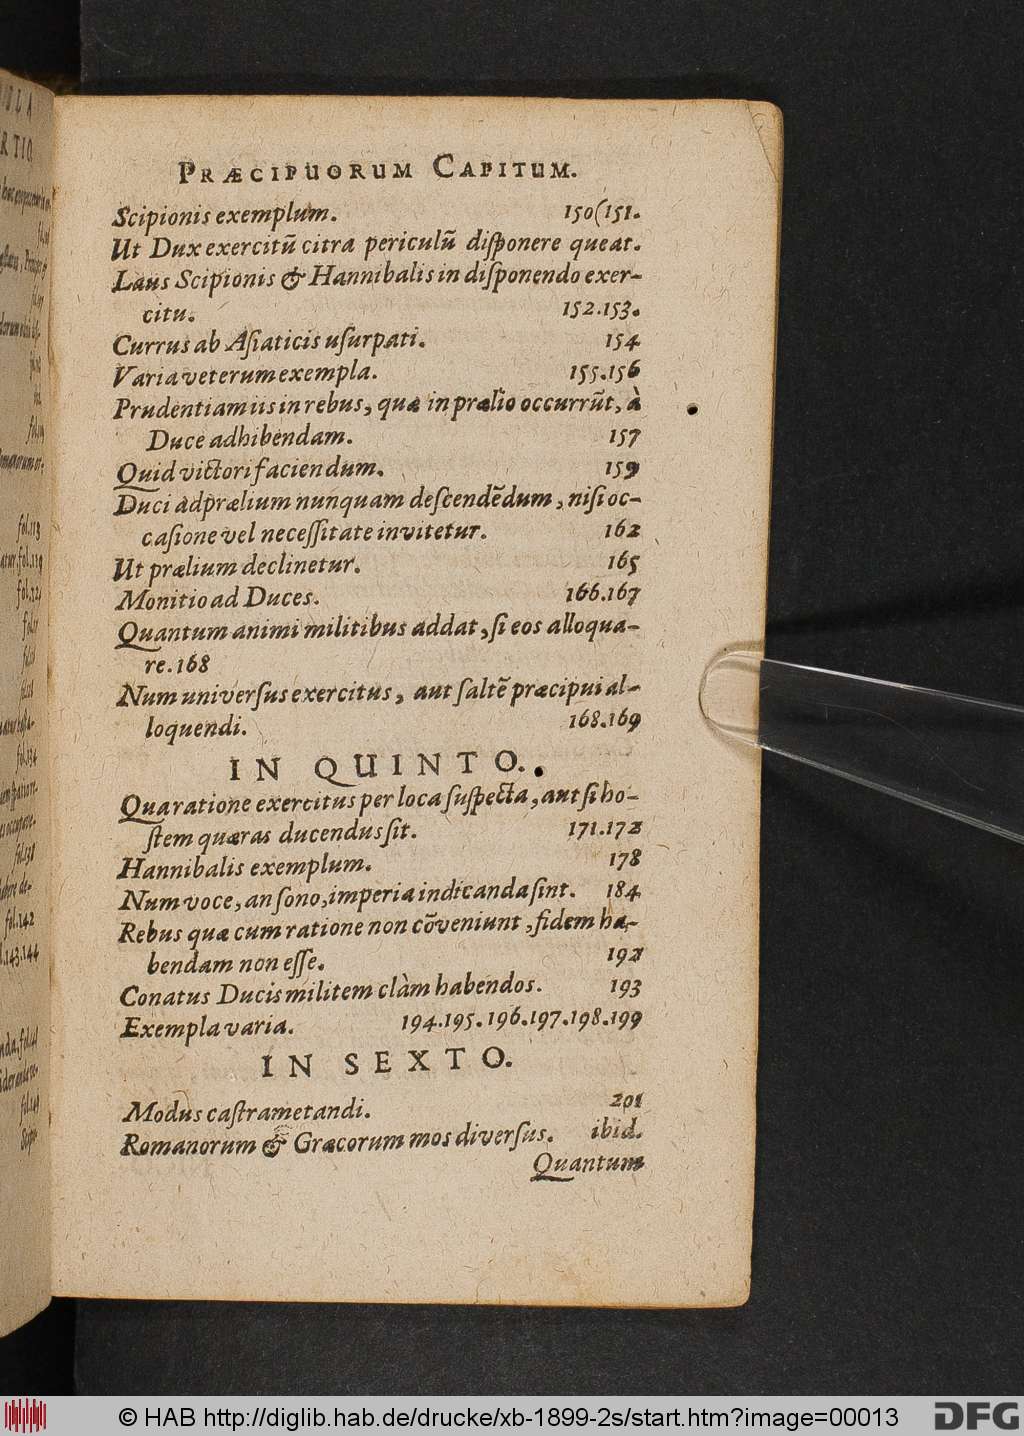 PRÆCIPUORUM CAPITUM.
Scipionis exemplum. 150(151.
Ut Dux exercitũ citra periculũ diſponere queat.
Laus Scipionis & Hannibalis in diſponendo exer-
citu. 152.153.
Currus ab Aſiaticis uſurpati. 154
Varia veterum exempla. 155.156
Prudentiam iis in rebus, quæ in prælio occurrũt, à
Duce adhibendam. 157
Quid victori faciendum. 159
Duci ad prælium nunquam deſcendẽdum, niſi oc-
caſione vel neceſſitate invitetur. 162
Ut prælium declinetur. 165
Monitio ad Duces. 166.167
Quantum animi militibus addat, ſi eos alloqua-
re. 168
Num univerſus exercitus, aut ſaltẽ præcipui al-
loquendi. 168.169
IN QUINTO.
Qua ratione exercitus per loca ſuſpecta, aut ſi ho-
ſtem quæras ducendus ſit. 171.172
Hannibalis exemplum. 178
Num voce, an ſono, imperia indicanda ſint. 184
Rebus quæ cum ratione non cõveniunt, fidem ha-
bendam non eſſe. 192
Conatus Ducis militem clàm habendos. 193
Exempla varia. 194.195.196.197.198.199
IN SEXTO.
Modus caſtrametandi. 201
Romanorum & Græcorum mos diverſus. ibid.
Quantum
© HAB http://diglib.hab.de/drucke/xb-1899-2s/start.htm?image=00013
DFG